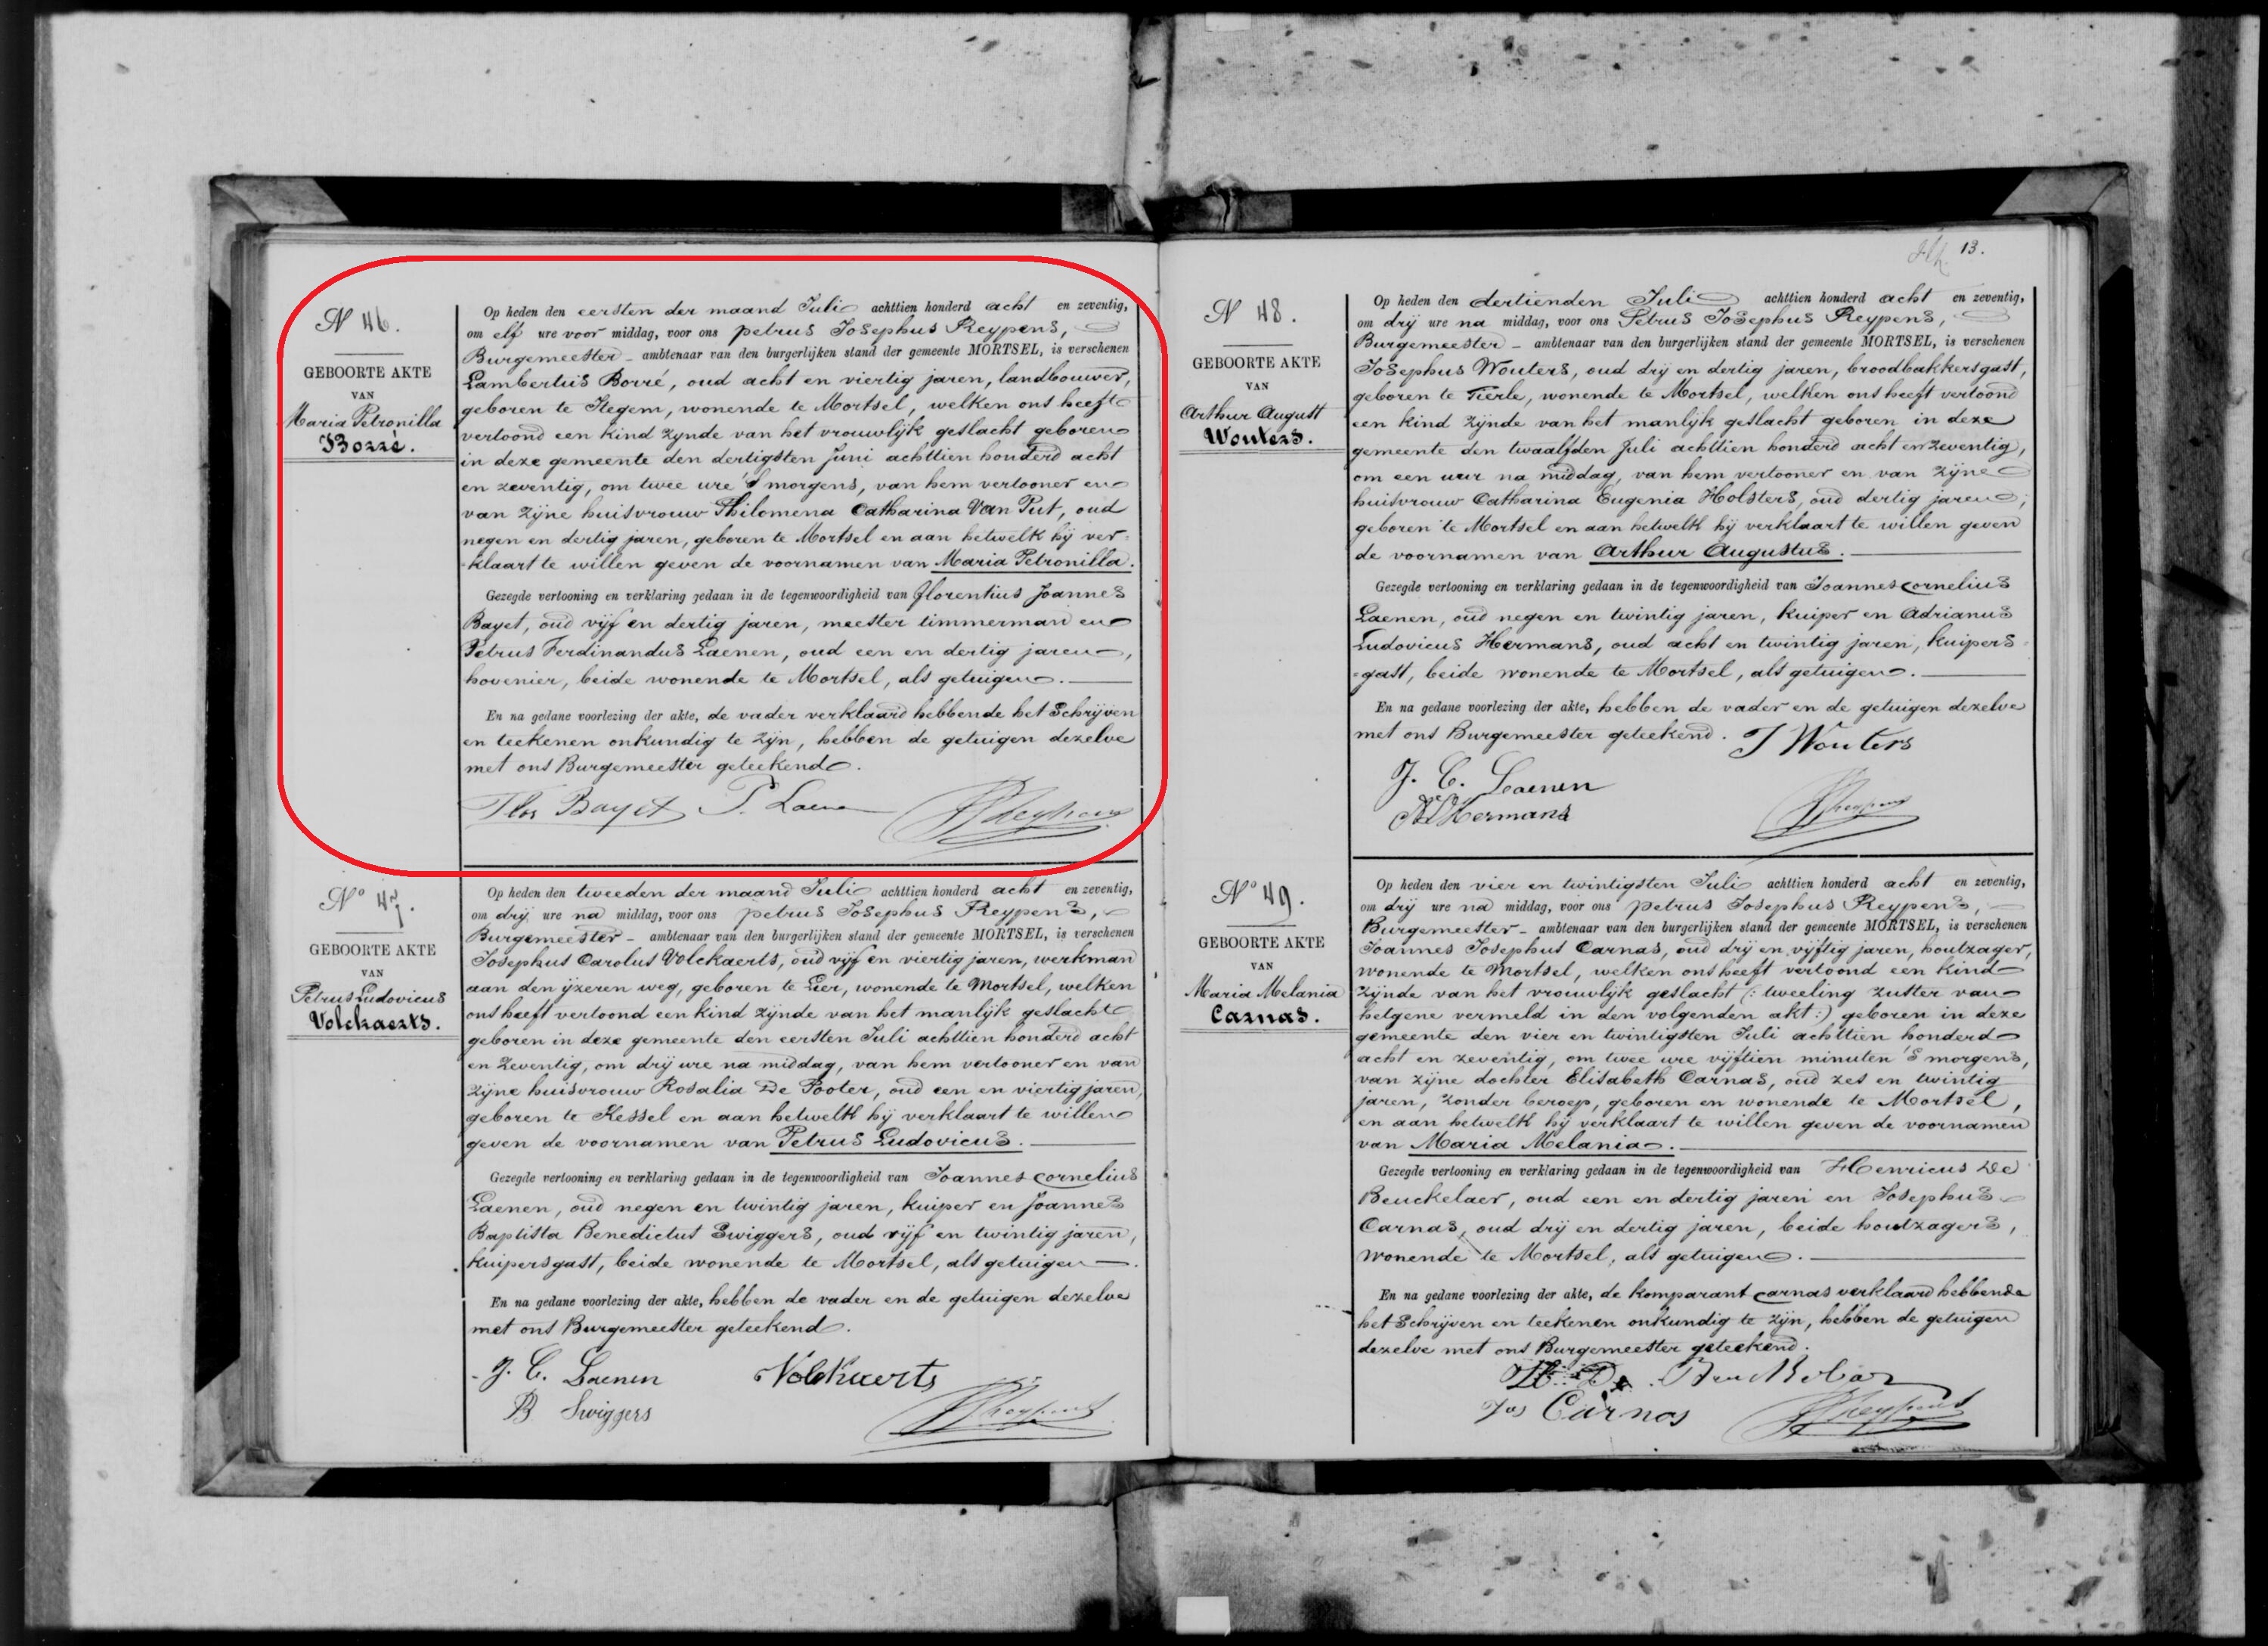 N 46.
GEBOORTE AKTE
VAN
Maria Petronilla
Borré.
Op heden den eersten der maand Juli achttien honderd acht en zeventig,
om elf ure voor middag, voor ons petrus Josephus Reypens,
Burgemeester - ambtenaar van den burgerlijken stand der gemeente MORTSEL, is verschenen
Lambertus Borré, oud acht en viertig jaren, landbouwer,
geboren te Itegem, wonende te Mortsel, welken ons heeft
vertoond een kind zynde van het vrouwlyk geslacht geboren
in deze gemeente den dertigsten Juni achttien honderd acht
en zeventig, om twee ure 's morgens, van hem vertooner en
van zyne huisvrouw Philomena Catharina Van Put, oud
negen en dertig jaren, geboren te Mortsel en aan hetwelk hij ver-
-klaart te willen geven de voornamen van Maria Petronilla.
Gezegde vertooning en verklaring gedaan in de tegenwoordigheid van Florentius Joannes
Bayet, oud vijf en dertig jaren, meester timmerman en
Petrus Ferdinandus Laenen, oud een en dertig jaren,
hovenier, beide wonende te Mortsel, als getuigen.
En na gedane voorlezing der akte, de vader verklaard hebbende het Schrijven
en teekenen onkundig te zijn, hebben de getuigen dezelve
met ons Burgemeester geteekend.
Flor Bayet P. Laenen PJReypens
N° 47.
GEBOORTE AKTE
VAN
Petrus Ludovicus
Volckaerts.
Op heden den tweeden der maand Juli achttien honderd acht en zeventig,
om drij ure na middag, voor ons petrus Josephus Reypens,
Burgemeester - ambtenaar van den burgerlijken stand der gemeente MORTSEL, is verschenen
Josephus Carolus Volckaerts, oud vijf en viertig jaren, werkman
aan den ijzeren weg, geboren te Lier, wonende te Mortsel, welken
ons heeft vertoond een kind zijnde van het manlijk geslacht
geboren in deze gemeente den eersten Juli achttien honderd acht
en Zeventig, om drij ure na middag, van hem vertooner en van
zijne huisvrouw Rosalia De Pooter, oud een en viertig jaren,
geboren te Kessel en aan hetwelk hij verklaart te willen
geven de voornamen van Petrus Ludovicus.
Gezegde vertooning en verklaring gedaan in de tegenwoordigheid van Joannes Cornelius
Laenen, oud negen en twintig jaren, kuiper en Joannes
Baptista Benedictus Swiggers, oud vijf en twintig jaren,
kuipersgast, beide wonende te Mortsel, als getuigen.
En na gedane voorlezing der akte, hebben de vader en de getuigen dezelve
met ons Burgemeester geteekend.
J. C. Laenen Volckaerts
B Swiggers PJReypens
13.
N 48.
GEBOORTE AKTE
VAN
Arthur August
Wouters.
Op heden den dertienden Juli achttien honderd acht en zeventig,
om drij ure na middag, voor ons Petrus Josephus Reypens,
Burgemeester - ambtenaar van den burgerlijken stand der gemeente MORTSEL, is verschenen
Josephus Wouters, oud drij en dertig jaren, broodbakkersgast,
geboren te Tierle, wonende te Mortsel, welken ons heeft vertoond
een kind zijnde van het manlijk geslacht geboren in deze
gemeente den twaalfden Juli achttien honderd acht en zeventig,
om een uur na middag, van hem vertooner en van zijne
huisvrouw Catharina Eugenia Holsters, oud dertig jaren,
geboren te Mortsel en aan hetwelk hij verklaart te willen geven
de voornamen van Arthur Augustus.
Gezegde vertooning en verklaring gedaan in de tegenwoordigheid van Joannes Cornelius
Laenen, oud negen en twintig jaren, kuiper en Adrianus
Ludovicus Hermans, oud acht en twintig jaren, kuipers
-gast, beide wonende te Mortsel, als getuigen.
En na gedane voorlezing der akte, hebben de vader en de getuigen dezelve
met ons Burgemeester geteekend. J Wouters
J. C. Laenen
AL Hermans PJReypens
N° 49.
GEBOORTE AKTE
VAN
Maria Melania
Carnas.
Op heden den vier en twintigsten Juli achttien honderd acht en zeventig,
om drij ure na middag, voor ons petrus Josephus Reypens,
Burgemeester - ambtenaar van den burgerlijken stand der gemeente MORTSEL, is verschenen
Joannes Josephus Carnas, oud drij en vijftig jaren, houtzager,
wonende te Mortsel, welken ons heeft vertoond een kind
zijnde van het vrouwlijk geslacht (: tweeling zuster van
hetgene vermeld in den volgenden akt :) geboren in deze
gemeente den vier en twintigsten Juli achttien honderd
acht en zeventig, om twee ure vijftien minuten 's morgens,
van zijne dochter Elisabeth Carnas, oud zes en twintig
jaren, zonder beroep, geboren en wonende te Mortsel,
en aan hetwelk hij verklaart te willen geven de voornamen
van Maria Melania.
Gezegde vertooning en verklaring gedaan in de tegenwoordigheid van Henricus De
Beuckelaer, oud een en dertig jaren en Josephus
Carnas, oud drij en dertig jaren, beide houtzagers,
wonende te Mortsel, als getuigen.
En na gedane voorlezing der akte, de komparant Carnas verklaard hebbende
het Schrijven en teekenen onkundig te zijn, hebben de getuigen
dezelve met ons Burgemeester geteekend.
H. De
Jos Carnas PJReypens